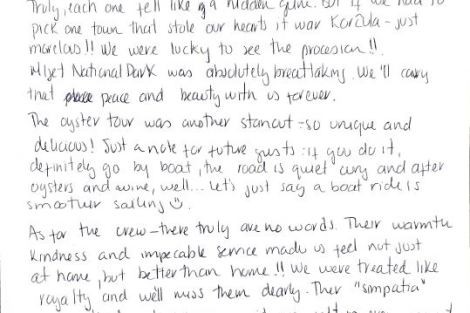 Truly, each one felt like a hidden gem. But if we had to
pick one town that stole our hearts it was Korčula - just
marvelous!! We were lucky to see the procesion!!
Mljet National Park was absolutely breathtaking. We'll carry
that place peace and beauty with us forever.
The oyster tour was another stanout - so unique and
delicious! Just a note for future gusts: if you do it,
definitely go by boat, the road is quiet curvy and after
oysters and wine, well... let's just say a boat ride is
smoother sailing ☺.
As for the crew - there truly are no words. Their warmth
kindness and impecable service made us feel not just
at home, but better than home!! We were treated like
royalty and we'll miss them dearly. Ther "simpatia"